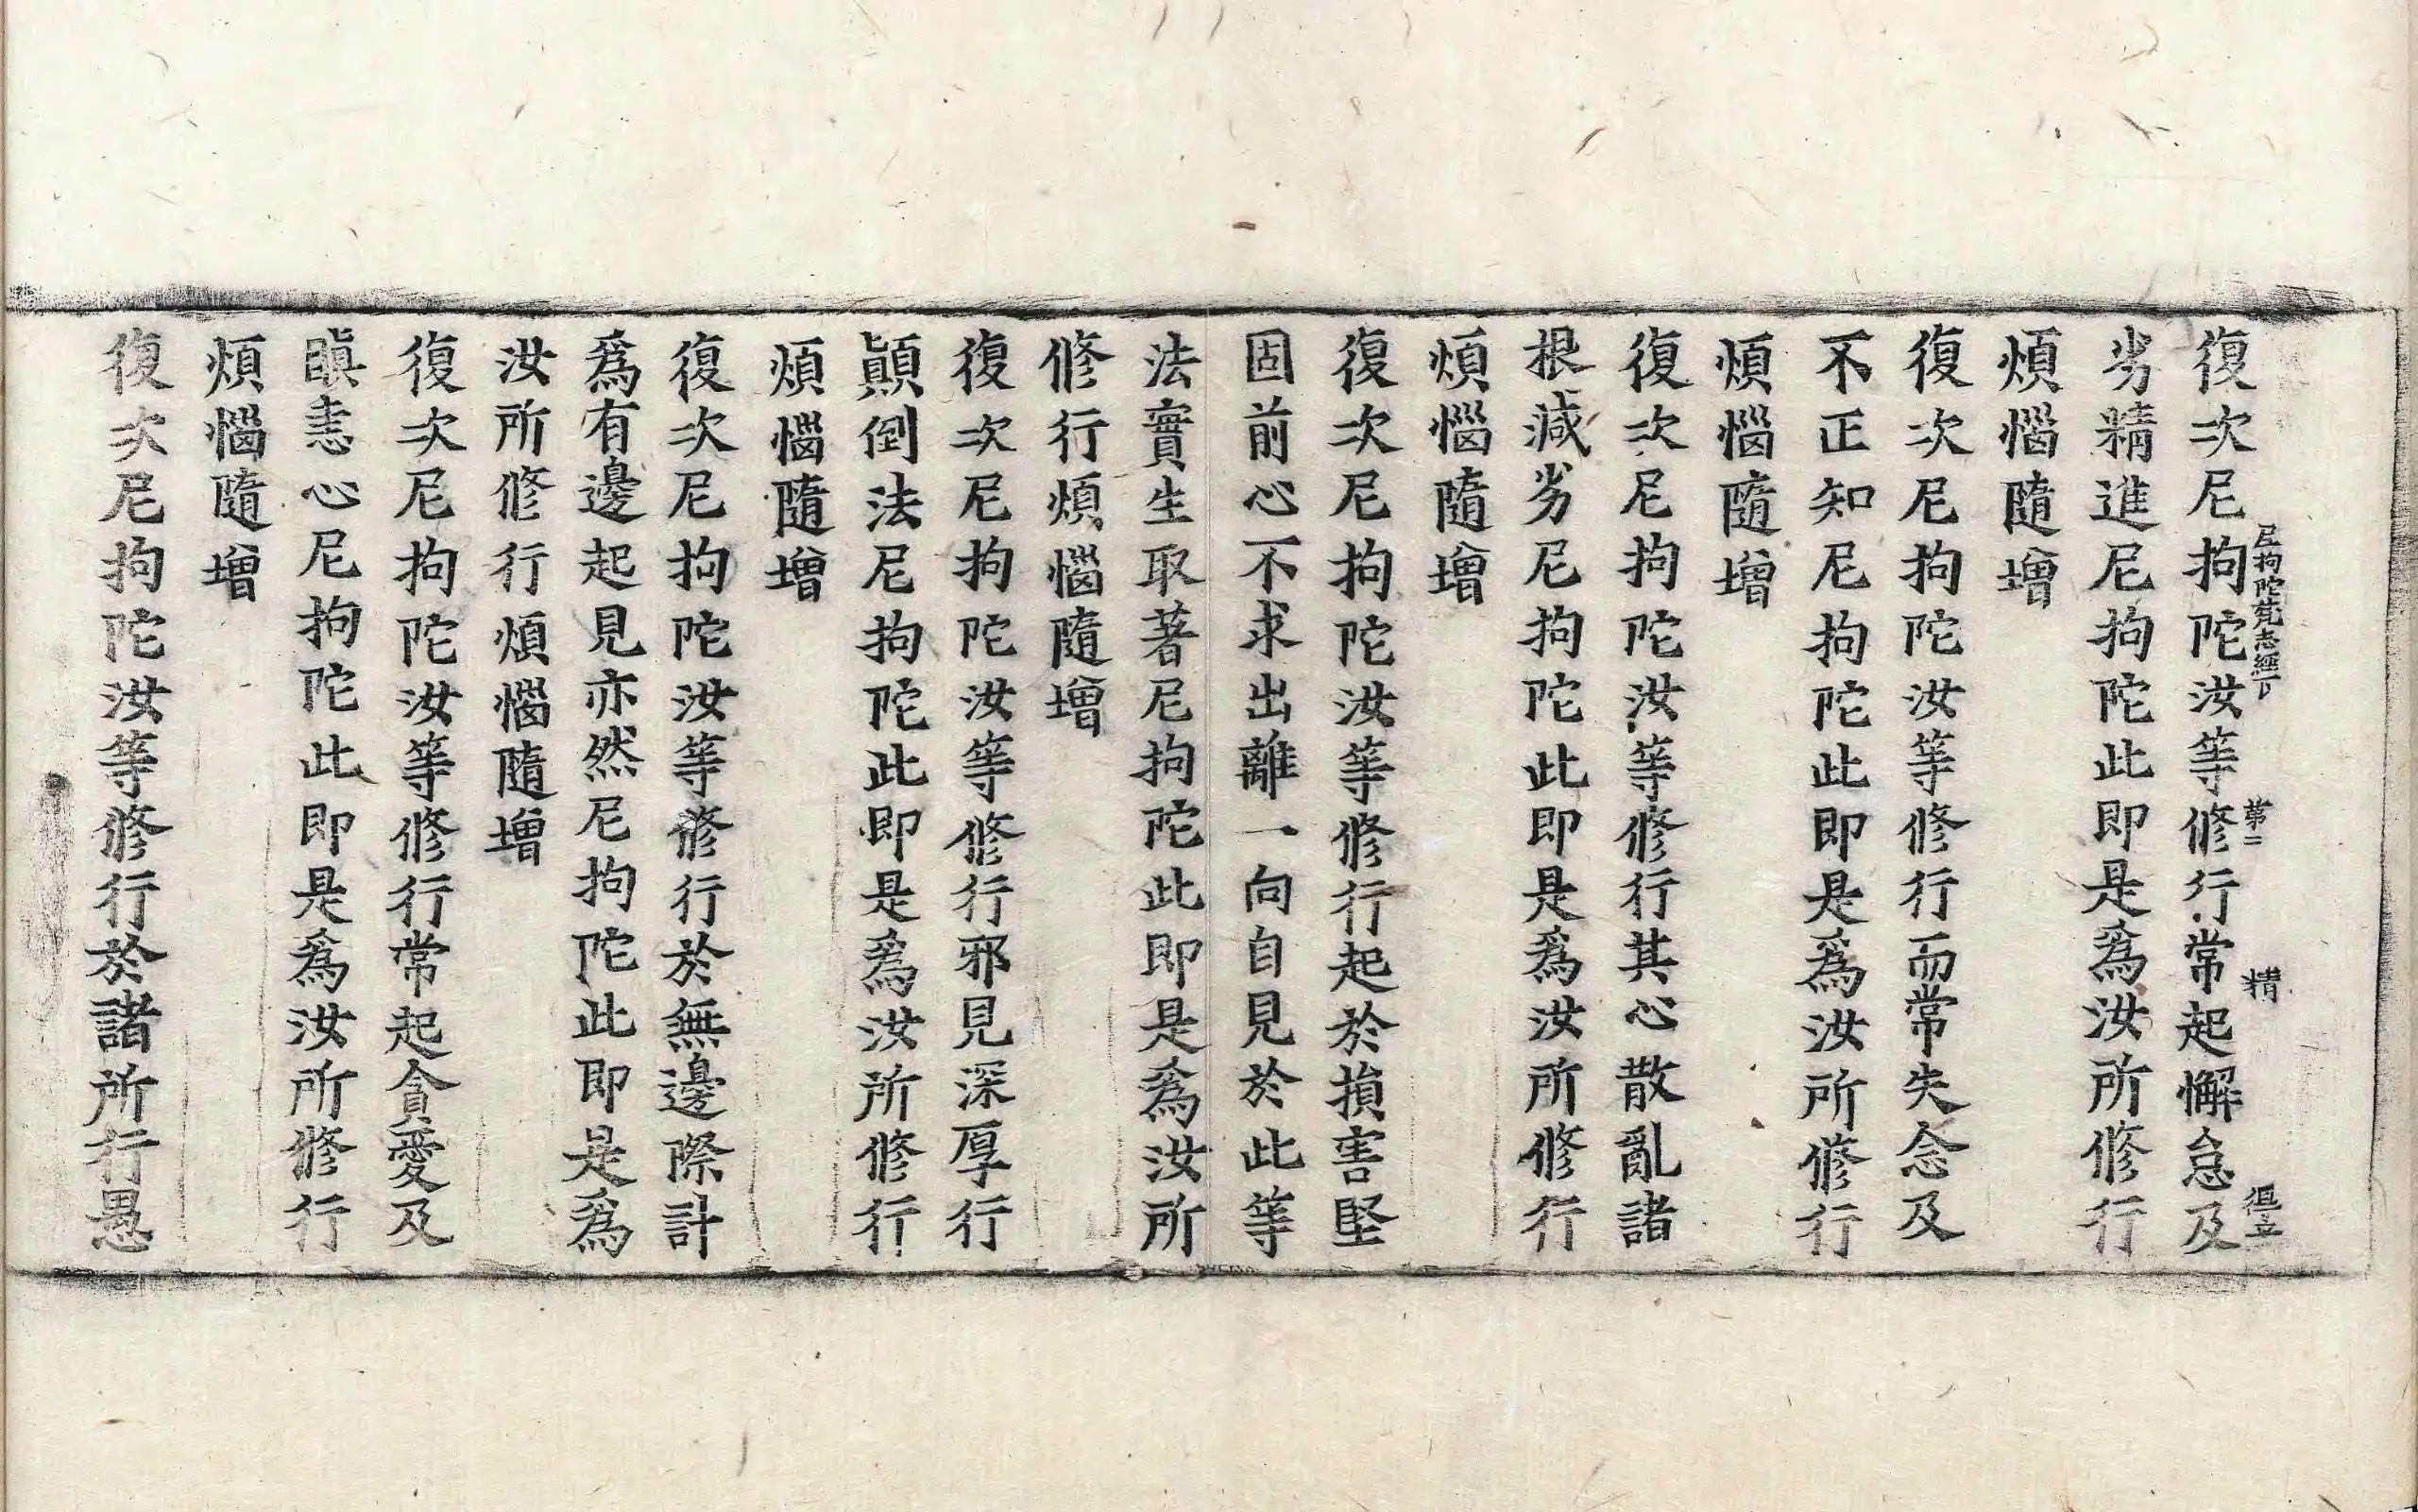 尼拘陀梵志經下 第二 精
復次尼拘陀汝等修行常起懈怠及
劣精進尼拘陀此即是爲汝所修行
煩惱隨增
復次尼拘陀汝等修行而常失念及
不正知尼拘陀此即是爲汝所修行
煩惱隨增
復次尼拘陀汝等修行其心散亂諸
根減劣尼拘陀此即是爲汝所修行
煩惱隨增
復次尼拘陀汝等修行起於損害堅
固前心不求出離一向自見於此等
法實生取著尼拘陀此即是爲汝所
修行煩惱隨增
復次尼拘陀汝等修行邪見深厚行
顚倒法尼拘陀此即是爲汝所修行
煩惱隨增
復次尼拘陀汝等修行於無邊際計
爲有邊起見亦然尼拘陀此即是爲
汝所修行煩惱隨增
復次尼拘陀汝等修行常起貪愛及
瞋恚心尼拘陀此即是爲汝所修行
煩惱隨增
復次尼拘陀汝等修行於諸所行愚